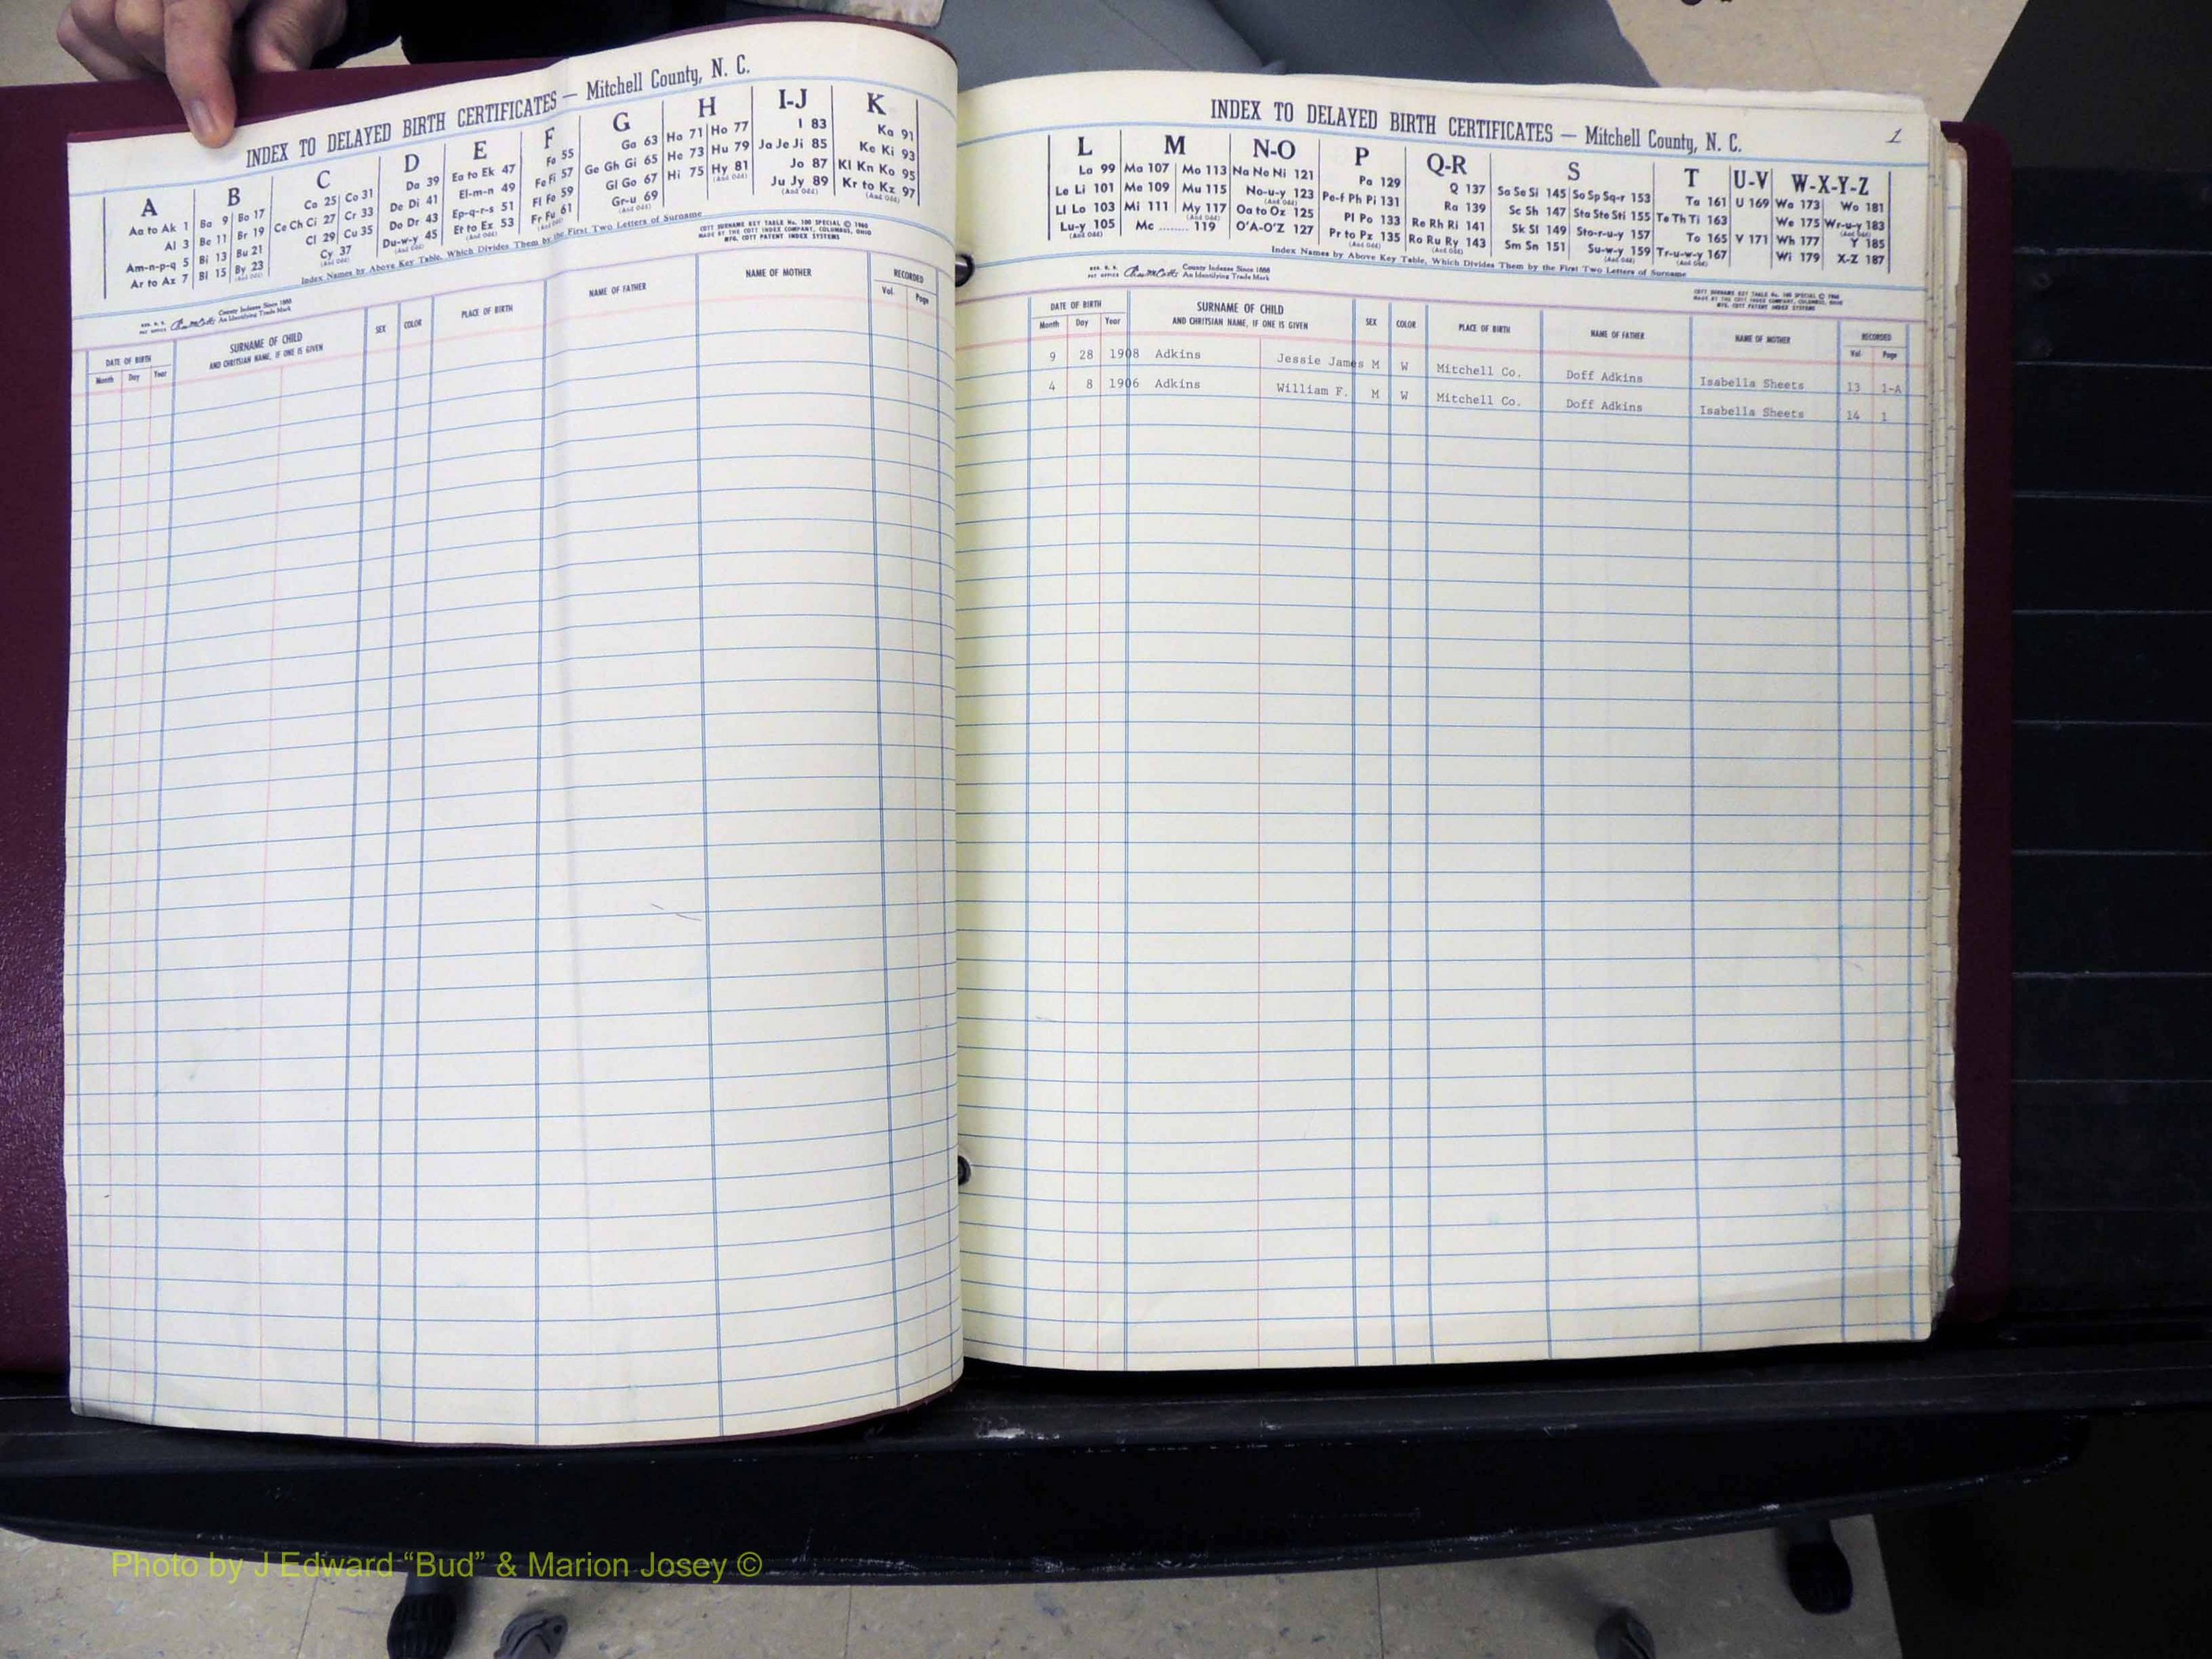 INDEX TO DELAYED BIRTH CERTIFICATES — Mitchell County, N. C.
A B C D E F G H I-J K
Aa to Ak 1 Ba 9 Bo 17 Ca 25 Co 31 Da 39 Ea to Ek 47 Fa 55 Ga 63 Ha 71 Ho 77 I 83 Ka 91
Al 3 Be 11 Br 19 Ce Ch Ci 27 Cr 33 De Di 41 El-m-n 49 Fe Fi 57 Ge Gh Gi 65 He 73 Hu 79 Ja Je Ji 85 Ke Ki 93
Am-n-p-q 5 Bi 13 Bu 21 Cl 29 Cu 35 Do Dr 43 Ep-q-r-s 51 Fl Fo 59 Gl Go 67 Hi 75 Hy 81 (And Odd) Jo 87 Kl Kn Ko 95
Ar to Az 7 Bl 15 By 23 (And Odd) Cy 37 (And Odd) Du-w-y 45 (And Odd) Et to Ez 53 (And Odd) Fr Fu 61 (And Odd) Gr-u 69 (And Odd) Ju Jy 89 (And Odd) Kr to Kz 97 (And Odd)
Index Names by Above Key Table, Which Divides Them by the First Two Letters of Surname
COTT SURNAME KEY TABLE No. 100 SPECIAL © 1960
MADE BY THE COTT INDEX COMPANY, COLUMBUS, OHIO
MFG. COTT PATENT INDEX SYSTEMS
County Indexes Since 1888
An Identifying Trade Mark
DATE OF BIRTH SURNAME OF CHILD SEX COLOR PLACE OF BIRTH NAME OF FATHER NAME OF MOTHER RECORDED
Month Day Year AND CHRITSIAN NAME, IF ONE IS GIVEN Vol. Page
INDEX TO DELAYED BIRTH CERTIFICATES — Mitchell County, N. C. 1
L M N-O P Q-R S T U-V W-X-Y-Z
La 99 Ma 107 Mo 113 Na Ne Ni 121 Pa 129 Q 137 Sa Se Si 145 So Sp Sq-r 153 Ta 161 U 169 Wa 173 Wo 181
Le Li 101 Me 109 Mu 115 No-u-y 123 (And Odd) Pe-f Ph Pi 131 Ra 139 Sc Sh 147 Sta Ste Sti 155 Te Th Ti 163 We 175 Wr-u-y 183 (And Odd)
Ll Lo 103 Mi 111 My 117 (And Odd) Oa to Oz 125 Pl Po 133 Re Rh Ri 141 Sk Sl 149 Sto-r-u-y 157 To 165 V 171 Wh 177 Y 185
Lu-y 105 (And Odd) Mc ........ 119 O'A-O'Z 127 Pr to Pz 135 (And Odd) Ro Ru Ry 143 (And Odd) Sm Sn 151 Su-w-y 159 (And Odd) Tr-u-w-y 167 (And Odd) Wi 179 X-Z 187
Index Names by Above Key Table, Which Divides Them by the First Two Letters of Surname
County Indexes Since 1888
An Identifying Trade Mark
COTT SURNAME KEY TABLE No. 100 SPECIAL © 1960
MADE BY THE COTT INDEX COMPANY, COLUMBUS, OHIO
MFG. COTT PATENT INDEX SYSTEMS
DATE OF BIRTH SURNAME OF CHILD SEX COLOR PLACE OF BIRTH NAME OF FATHER NAME OF MOTHER RECORDED
Month Day Year AND CHRITSIAN NAME, IF ONE IS GIVEN Vol. Page
9 28 1908 Adkins Jessie James M W Mitchell Co. Doff Adkins Isabella Sheets 13 1-A
4 8 1906 Adkins William F. M W Mitchell Co. Doff Adkins Isabella Sheets 14 1
Photo by J Edward “Bud” & Marion Josey ©